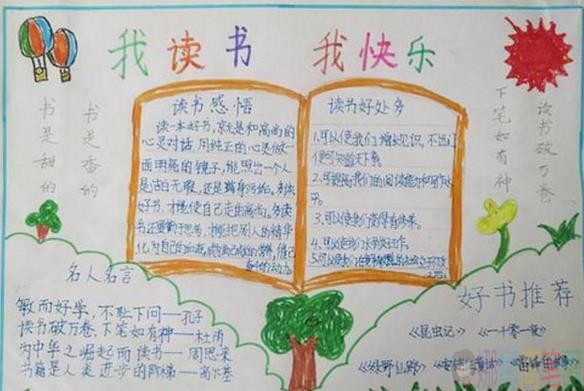 我读书 我快乐
书是甜的
书是香的
下笔如有神
读书破万卷
读书感悟
读一本好书,就是和高尚的
心灵对话,用纯正的心灵做一
面明亮的镜子,能照出一个人
是洁白无瑕,还是
好书,才能使自己走向高尚。多读
书还要勤于思考,才能把别人的精华
化为自己的血液,成为自己的营养,
读书好处多
1.可以使我们增长见识,不出门
便可知道天下事。
2.可提高我们的阅读能力和写作水
平。
3.可以使我们变得有修养。
4.可以使我们
5.可以使我们
名人名言
敏而好学,不耻下问——孔子
读书破万卷,下笔如有神——杜甫
为中华之崛起而读书——周恩来
书籍是人类进步的阶梯——高尔基
好书推荐
《昆虫记》 《一千零一夜》
《绿野仙踪》